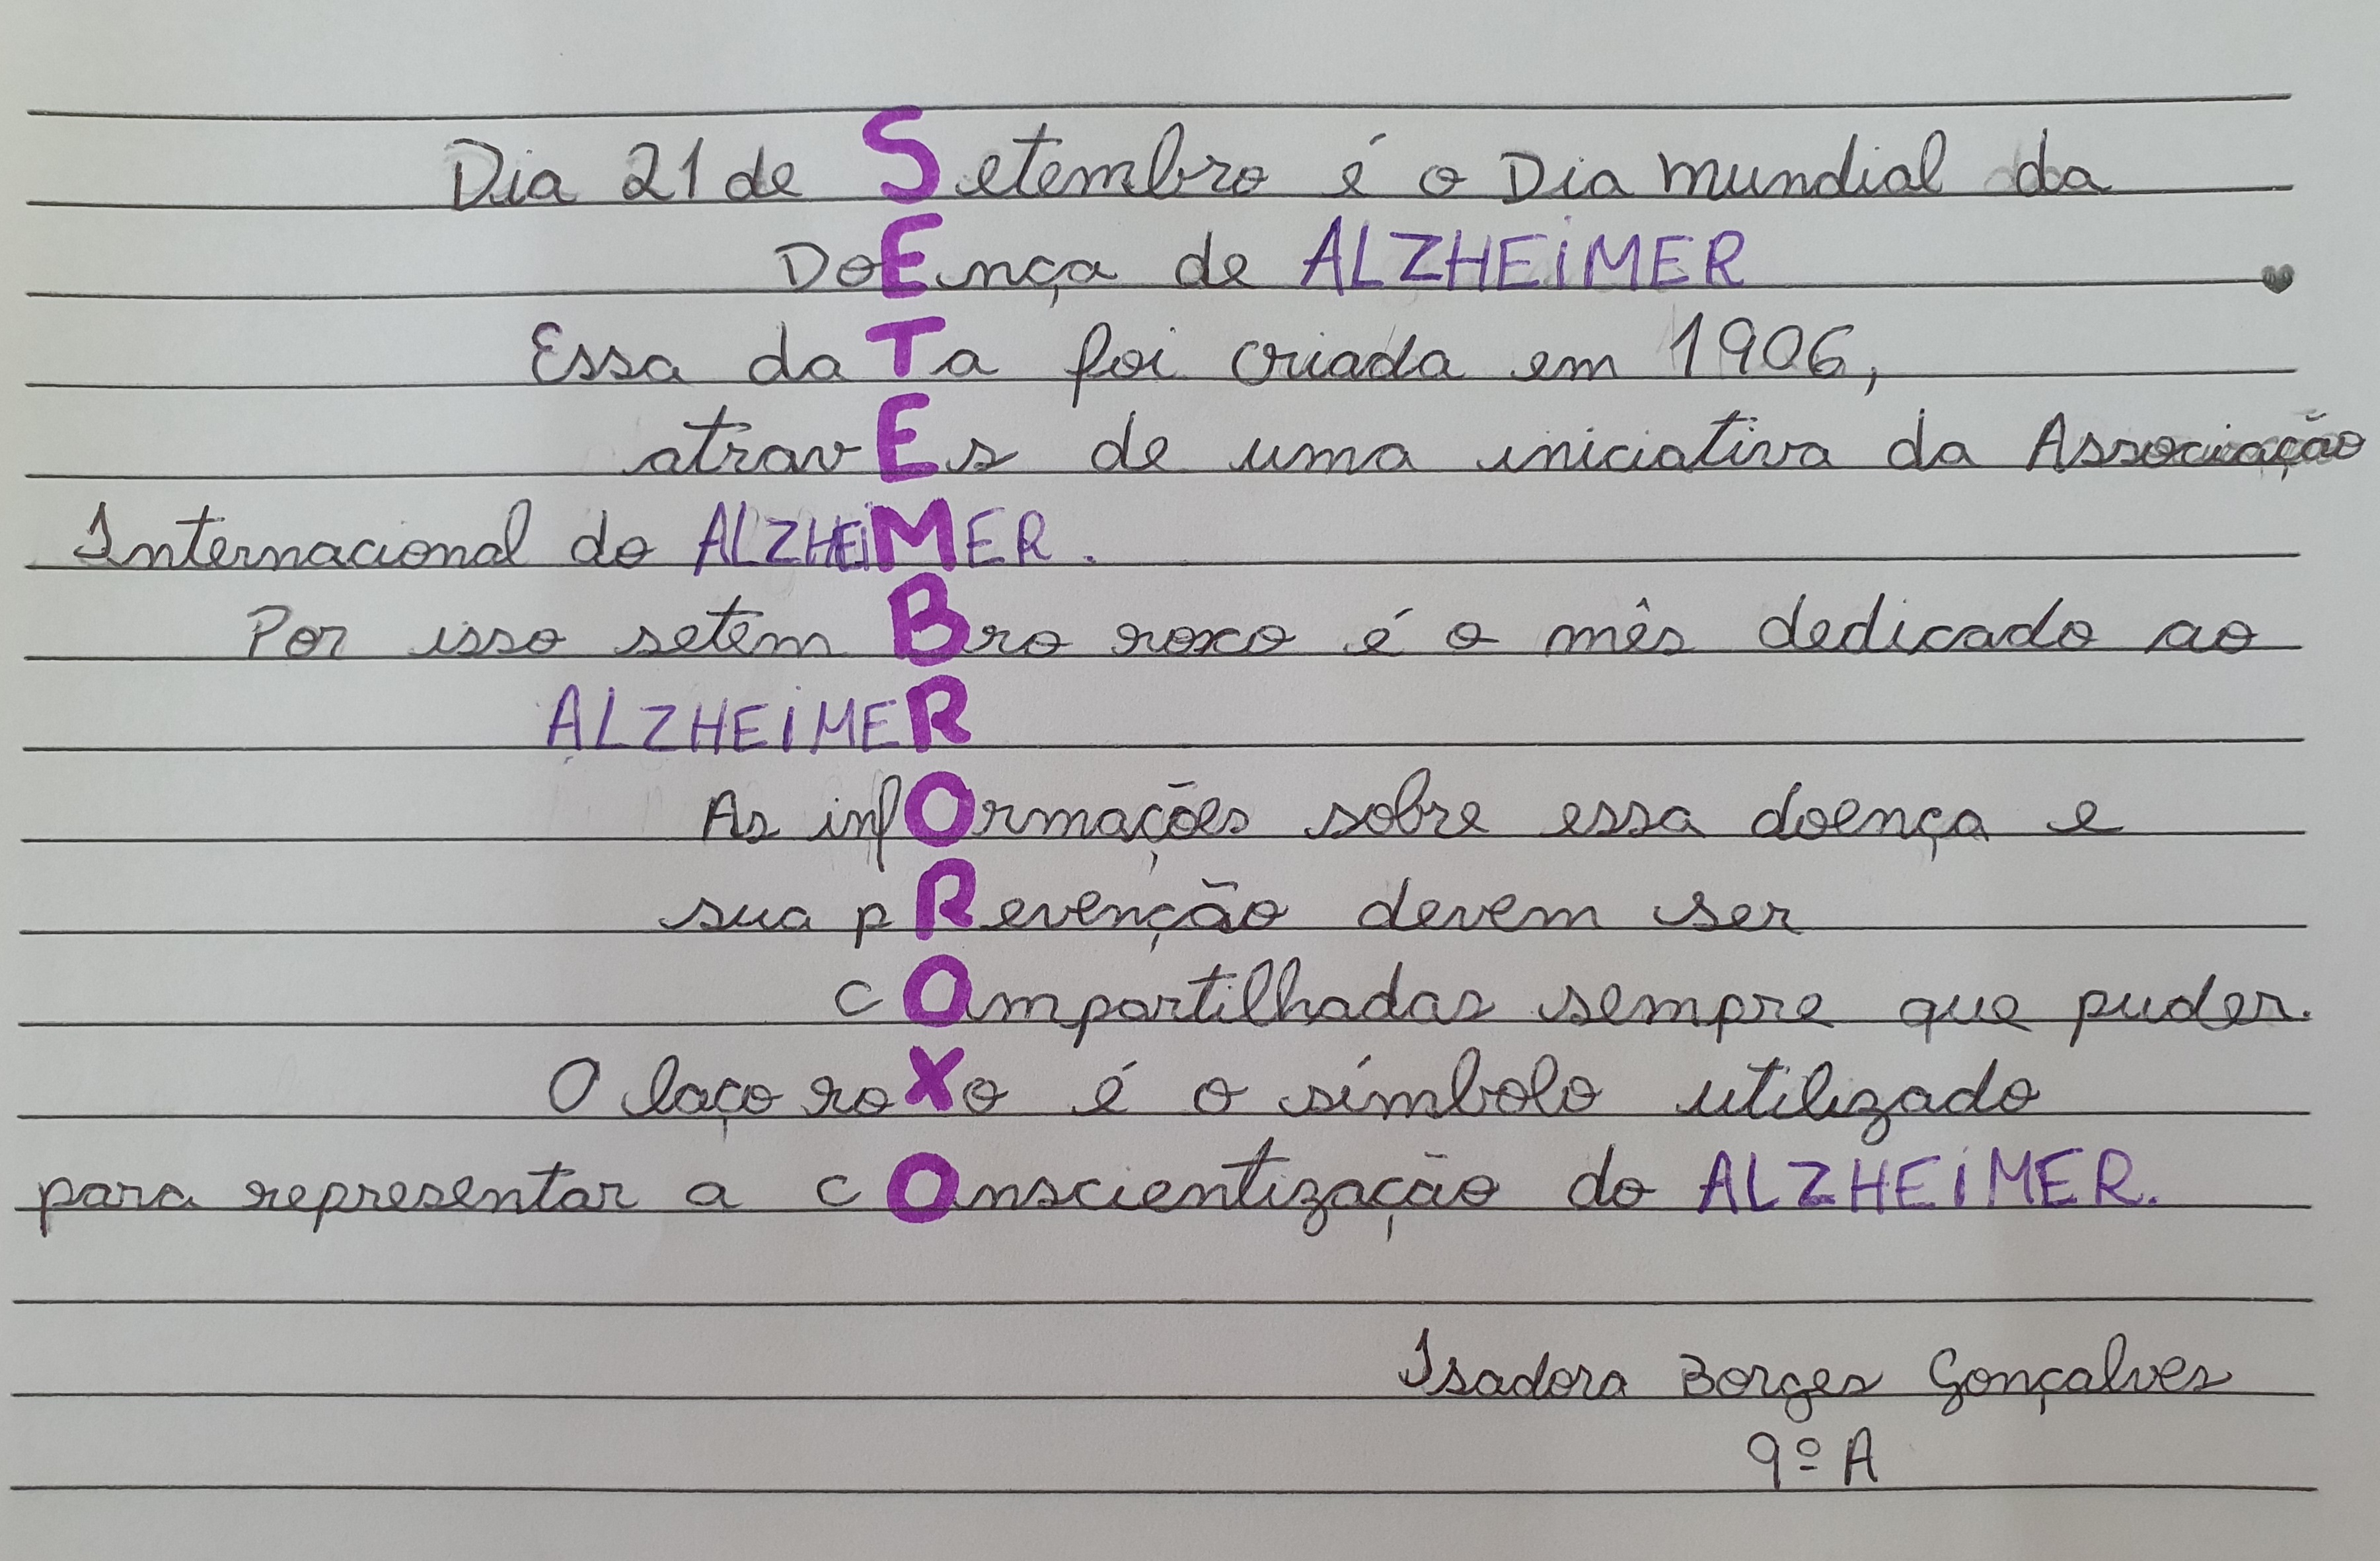 Dia 21 de Setembro é o Dia mundial da
DoEnça de ALZHEIMER
Essa daTa foi criada em 1906,
atravEs de uma iniciativa da Associação
Internacional do ALZHEIMER.
Por isso setemBro roxo é o mês dedicado ao
ALZHEIMER
As infOrmações sobre essa doença e
sua pRevenção devem ser
cOmpartilhadas sempre que puder.
O laço roXo é o símbolo utilizado
para representar a cOnscientização do ALZHEIMER.
Isadora Borges Gonçalves
9º A